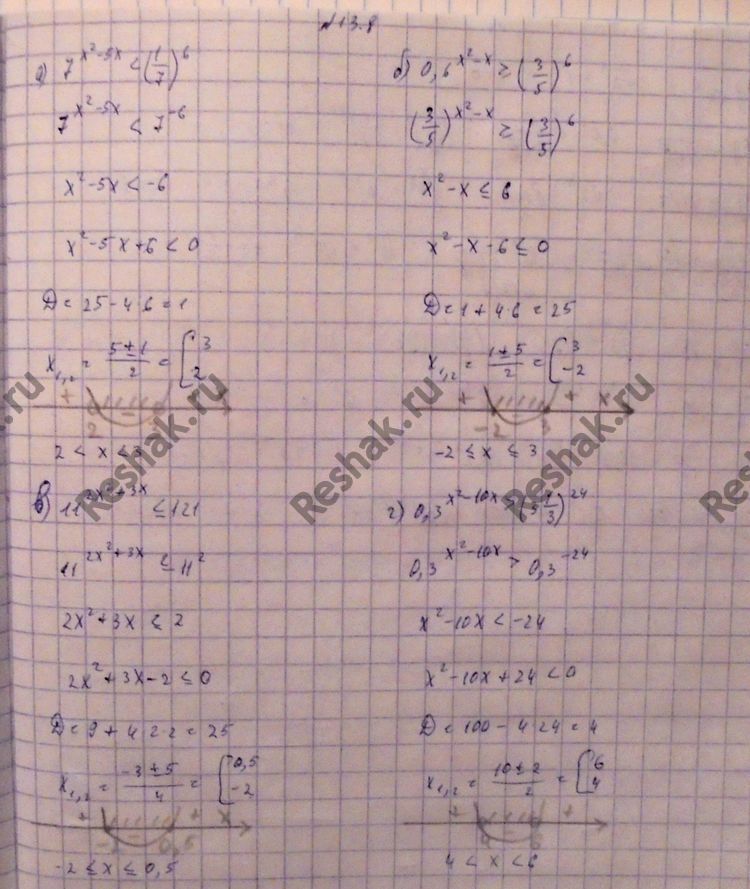 №13.8
а) 7^(x²-5x) < (1/7)^6
7^(x²-5x) < 7^(-6)
x²-5x < -6
x²-5x+6 < 0
D = 25-4·6 = 1
x₁,₂ = (5±1)/2 = [3 2
+ - x
2 3
2 < x < 3
б) 0,6^(x²-x) ≥ (3/5)^6
(3/5)^(x²-x) ≥ (3/5)^6
x²-x ≤ 6
x²-x-6 ≤ 0
D = 1+4·6 = 25
x₁,₂ = (1±5)/2 = [3 -2
+ - + x
-2 3
-2 ≤ x ≤ 3
в) 11^(2x²+3x) ≤ 121
11^(2x²+3x) ≤ 11²
2x²+3x ≤ 2
2x²+3x-2 ≤ 0
D = 9+4·2·2 = 25
x₁,₂ = (-3±5)/4 = [0,5 -2
+ - + x
-2 0,5
-2 ≤ x ≤ 0,5
г) 0,3^(x²-10x) > (3 1/3)^24
0,3^(x²-10x) > 0,3^(-24)
x²-10x < -24
x²-10x+24 < 0
D = 100-4·24 = 4
x₁,₂ = (10±2)/2 = [6 4
+ - +
4 6
4 < x < 6
Reshak.ru
Reshak.ru
Reshak.ru